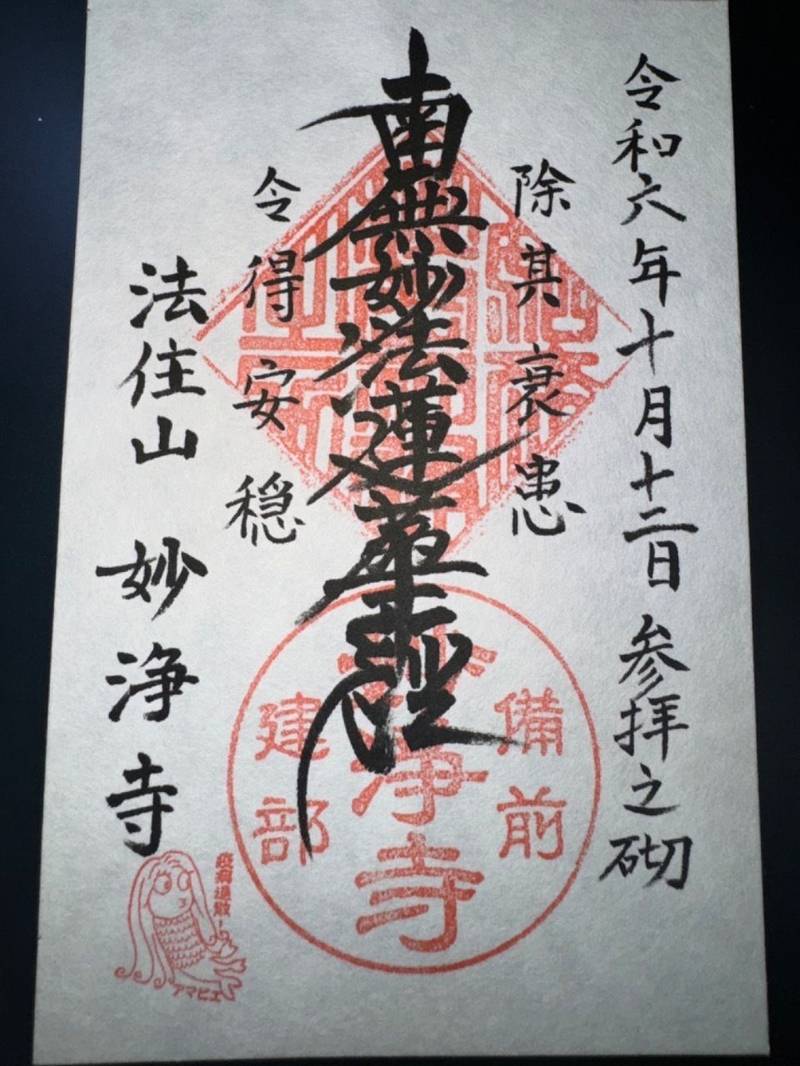 令和六年十月十二日 参拝之砌
除其衰患
南無妙法蓮華経
令得安穏
法住山 妙浄寺
備前
妙浄寺
建部
疫病退散!
アマビエ